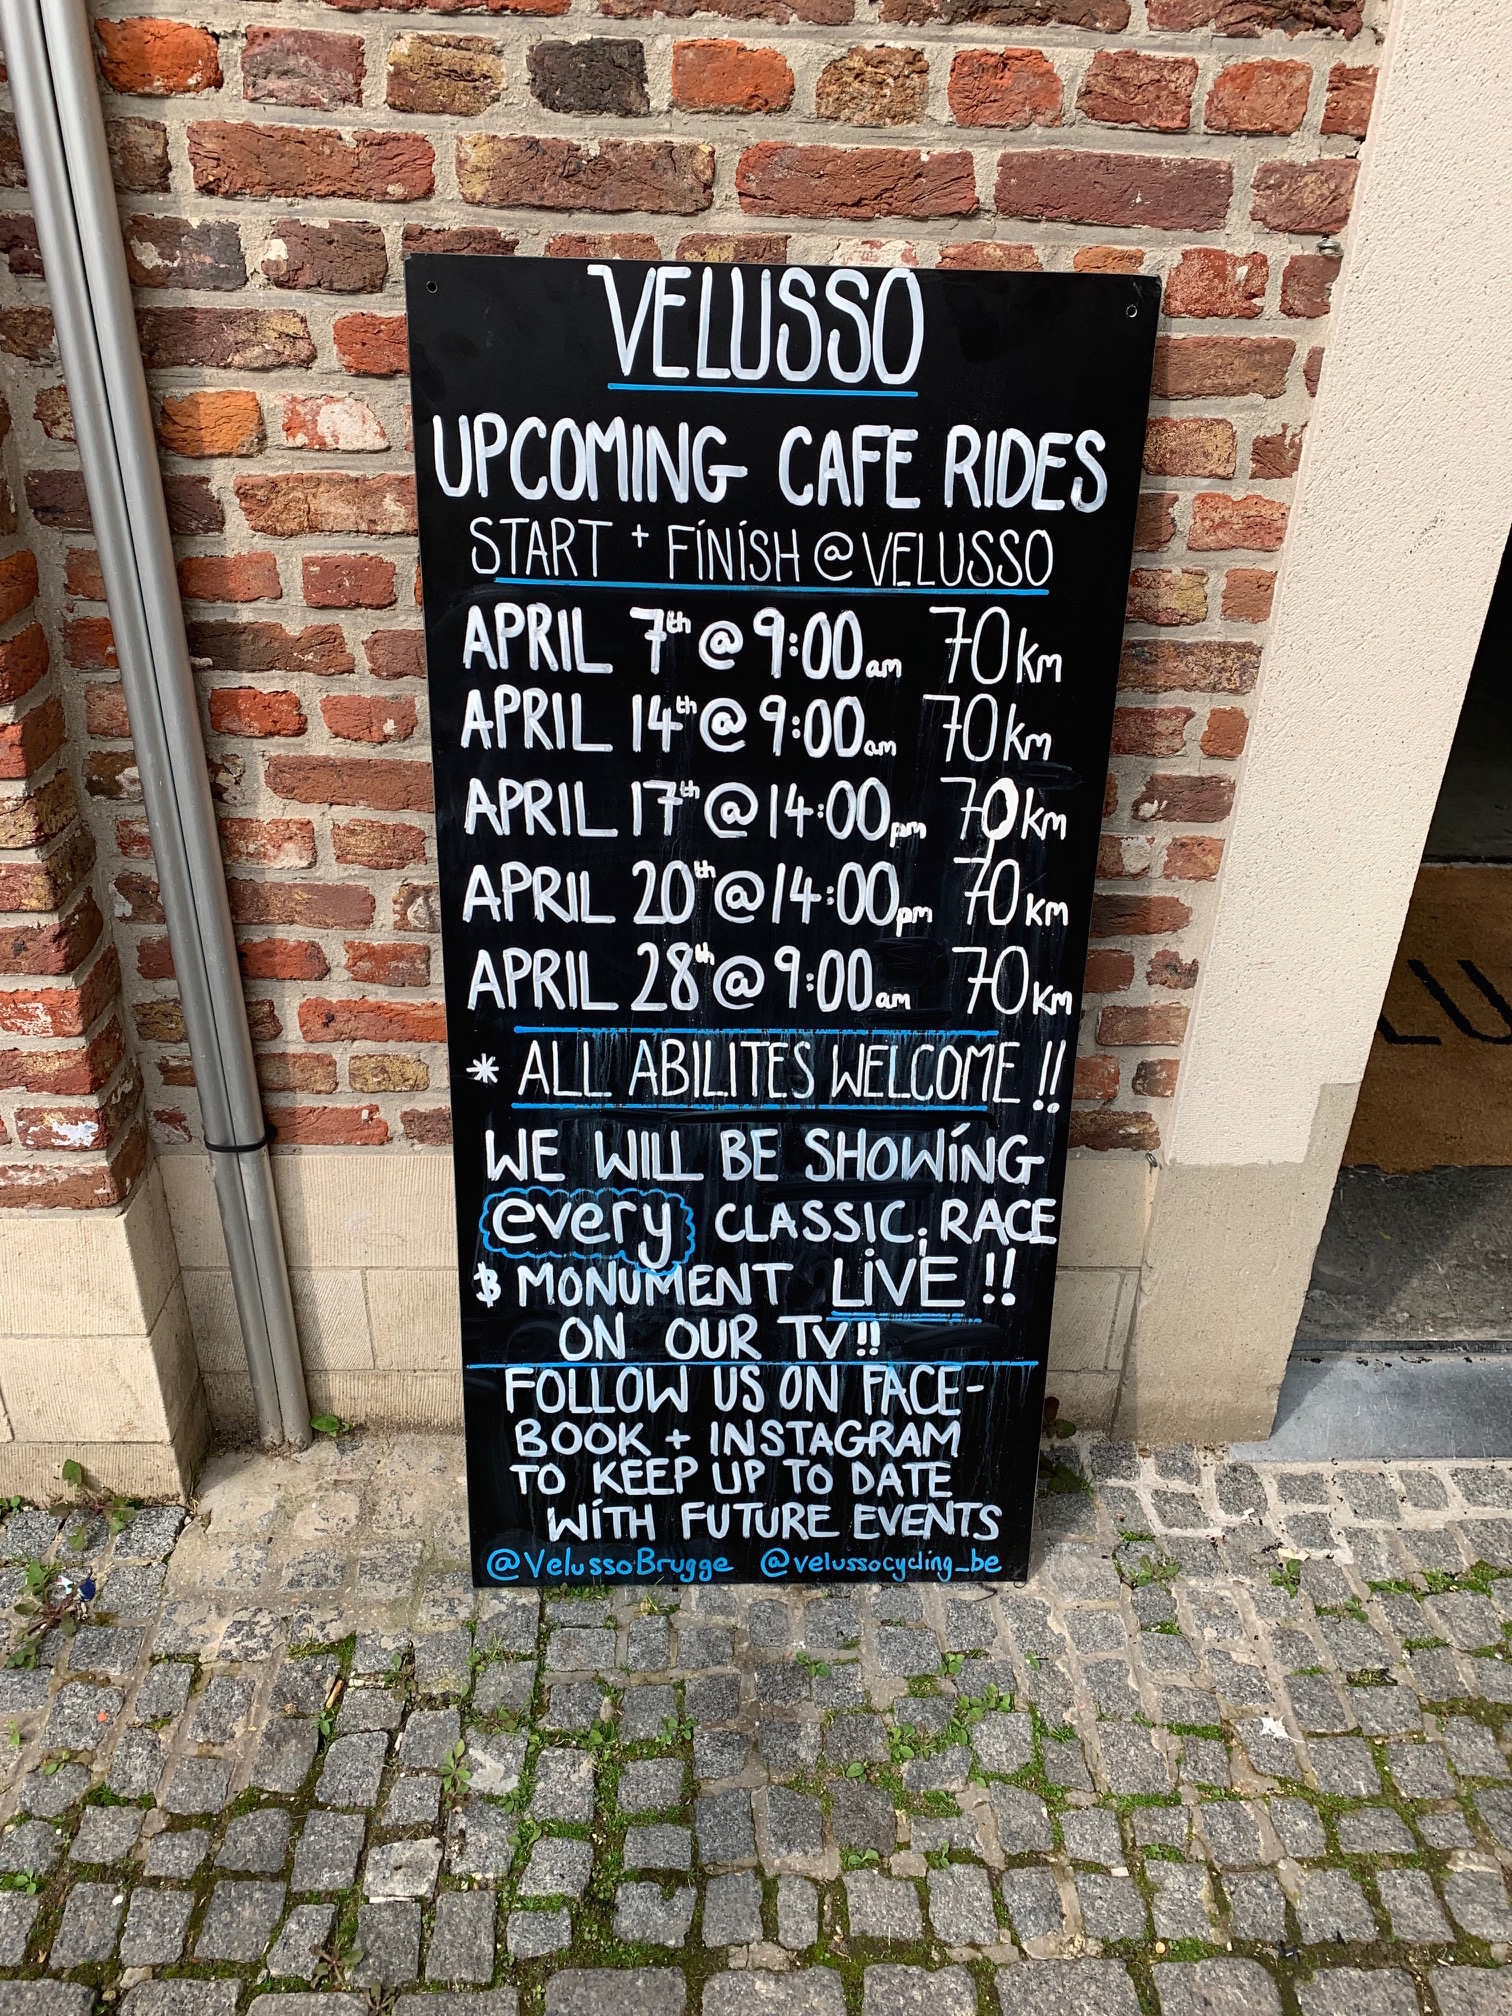 VELUSSO
UPCOMING CAFE RIDES
START + FINISH @ VELUSSO
APRIL 7th @ 9:00am 70km
APRIL 14th @ 9:00am 70km
APRIL 17th @ 14:00pm 70km
APRIL 20th @ 14:00pm 70km
APRIL 28th @ 9:00am 70km
* ALL ABILITES WELCOME !!
WE WILL BE SHOWING
every CLASSIC, RACE
& MONUMENT LIVE !!
ON OUR TV !!
FOLLOW US ON FACE-
BOOK + INSTAGRAM
TO KEEP UP TO DATE
WITH FUTURE EVENTS
@VelussoBrugge @velussocycling_be
LU